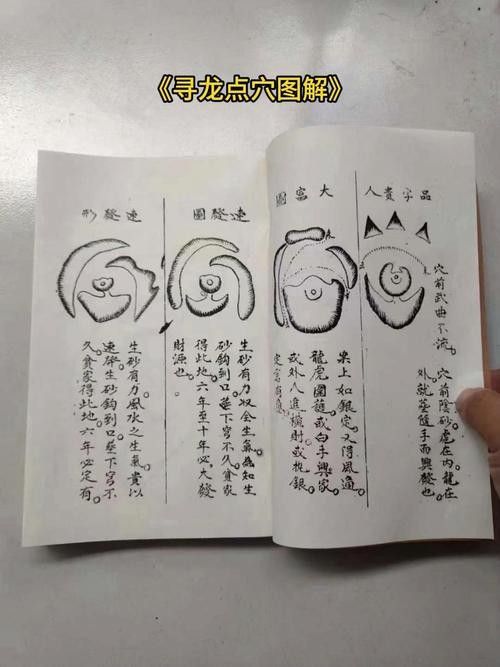 《寻龙点穴图解》
品字貴人
穴前武曲不流。
穴前陰砂處在内龍在
外就塟隨手而興發也。
大富圖
案上如銀定又得風過
龍虎圖隨或白手興家
或外人進橫財或挖銀
定富有
速發圖
生砂有力収全生氣為如生
砂鈎到口塟下穴不久貧家
得此地六年至十年必大發
財源也。
速發形
生砂有力風水之生氣貴以
速發生砂鈎到口塟下穴不
久貧家得此地六年必定有。